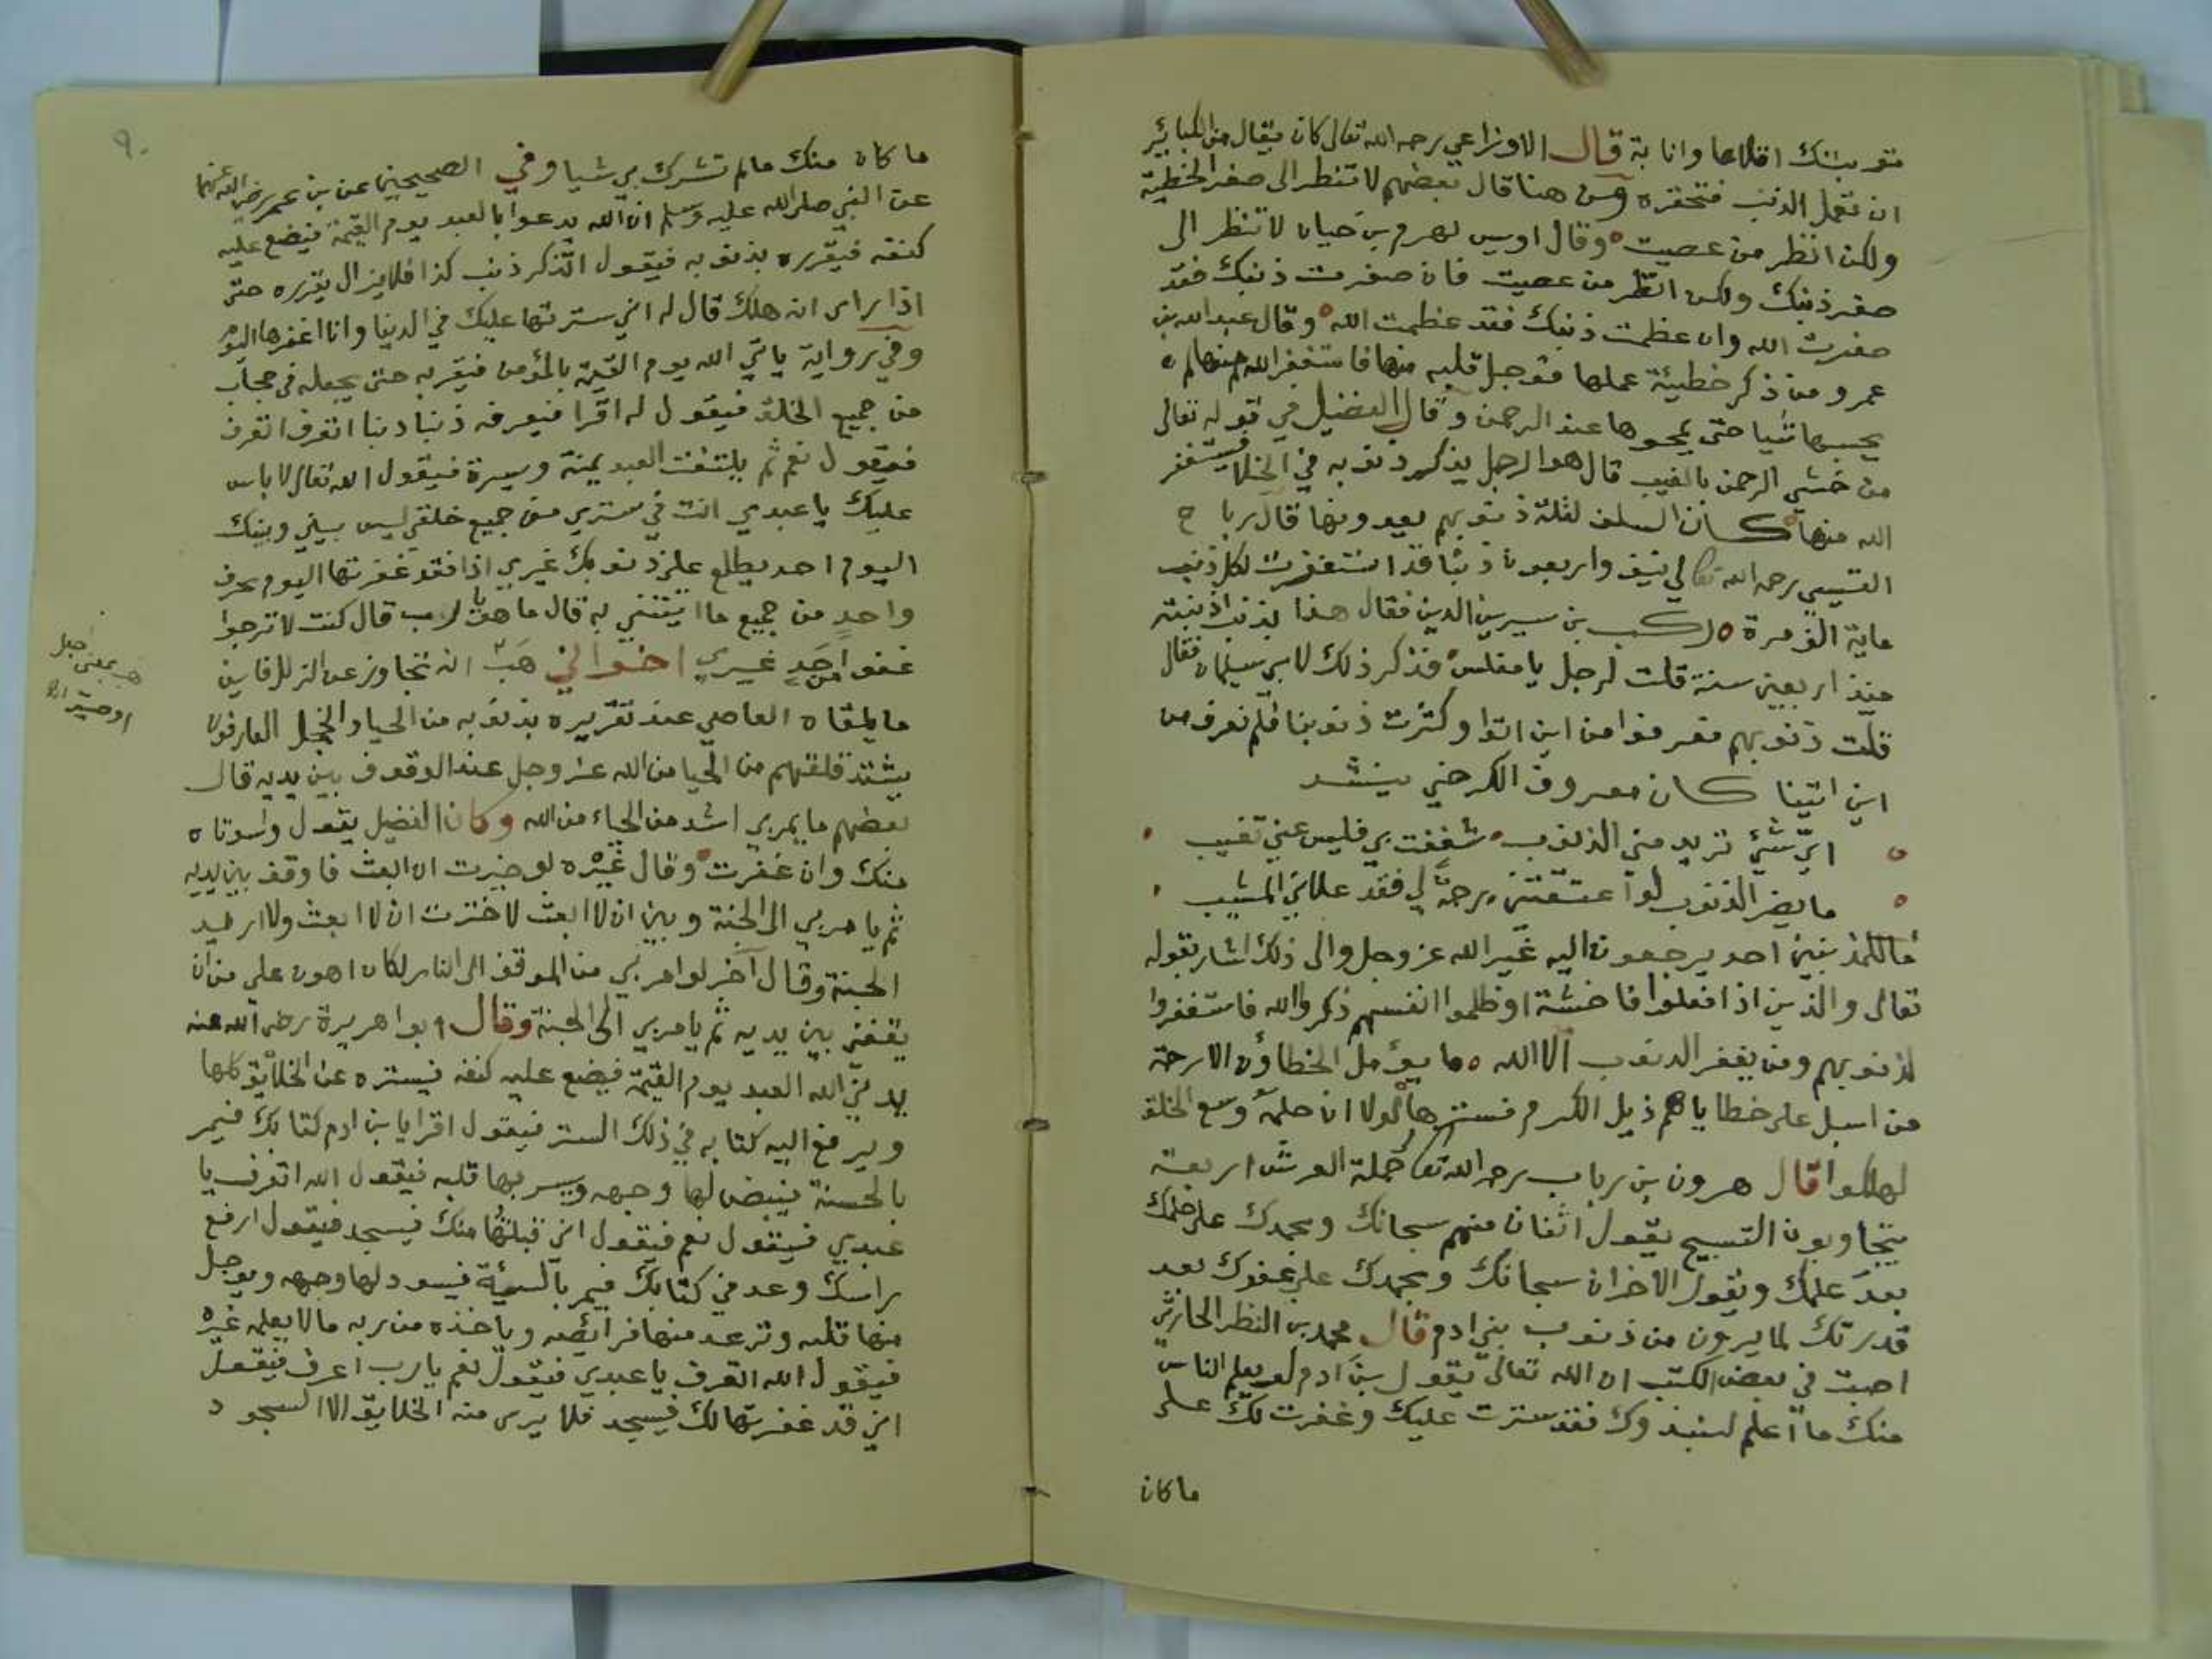 توبتك اقلاعا وانابة قال الاوزاعي رحمه الله تعالى كان يقال من الكبائر
ان تعمل الذنب فتحقره ومن هنا قال بعضهم لا تنظر الى صغر الخطية
ولكن انظر من عصيت وقال اويس لهرم بن حيان لا تنظر الى
صغر ذنبك ولكن انظر من عصيت فان صغرت ذنبك فقد
صغرت الله وان عظمت ذنبك فقد عظمت الله وقال عبد الله بن
عمرو من ذكر خطيئة عملها فوجل قلبه منها فاستغفر الله منها لم
يحبسها شيا حتى يمحوها عند الرحمن وقال الفضيل في قوله تعالى
من خشي الرحمن بالغيب قال هو الرجل يذكر ذنوبه في الخلا فيستغفر
الله منها كان السلف لقلة ذنوبهم يعدونها قال رباح
القيسي رحمه الله تعالى لي نيف واربعون ذنبا قد استغفرت لكل ذنب
ماية الف مرة ركب بن سيرين الدين فقال هذا بذنب اذنبته
منذ اربعين سنة قلت لرجل يا مفلس فذكر ذلك لابي سليمان فقال
قلت ذنوبهم فعرفوا من اين اتوا وكثرت ذنوبنا فلم نعرف من
اين اتينا كان معروف الكرخي ينشد
اي شئ تريد مني الذنوب شغفت بي فليس عني تغيب
ما يضر الذنوب لو اعتقتني رحمة لي فقد علاني المشيب
ما للمذنبين احد يرجعون اليه غير الله عز وجل والى ذلك اشار بقوله
تعالى والذين اذا فعلوا فاحشة او ظلموا انفسهم ذكروا الله فاستغفروا
لذنوبهم ومن يغفر الذنوب الا الله ما يؤمل الخطاؤن الا رحمة
من اسبل على خطاياهم ذيل الكرم فسترها لولا ان حلمه وسع الخلق
لهلكوا قال هرون بن رباب رحمه الله تعالى حملة العرش اربعة
يتجاوبون التسبيح يقول اثنان منهم سبحانك وبحمدك على حلمك
بعد علمك ويقول الاخران سبحانك وبحمدك على عفوك بعد
قدرتك لما يرون من ذنوب بني ادم قال محمد بن النظر الحارثي
اصبت في بعض الكتب ان الله تعالى يقول بن ادم لو يعلم الناس
منك ما اعلم لنبذوك فقد سترت عليك وغفرت لك على
ما كان
٩٠
ما كان منك ما لم تشرك بي شيا وفي الصحيحين عن بن عمر رضي الله عنهما
عن النبي صلى الله عليه وسلم ان الله يدعوا بالعبد يوم القيمة فيضع عليه
كنفه فيقرره بذنوبه فيقول اتذكر ذنب كذا فلا يزال يقرره حتى
اذا راى انه هلك قال له اني سترتها عليك في الدنيا وانا اغفرها اليوم
وفي رواية ياتي الله يوم القيمة بالمؤمن فيقربه حتى يجعله في حجاب
من جميع الخلق فيقول له اقرا فيعرفه ذنبا ذنبا اتعرف اتعرف
فيقول نعم ثم يلتفت العبد يمنة ويسرة فيقول الله تعالى لا باس
عليك يا عبدي انت في ستري من جميع خلقي ليس بيني وبينك
اليوم احد يطلع على ذنوبك غيري اذا فقد غفرتها اليوم بحرف
واحد من جميع ما اتيتني به قال ما هو يا رب قال كنت لا ترجوا
عفو احد غيري اخواني هب انه تجاوز عن الزلل فاين
ما يلقاه العاصي عند تقريره بذنوبه من الحيا والخجل العارفون
يشتد قلقهم من الحيا من الله عز وجل عند الوقوف بين يديه قال
بعضهم ما يمر بي اشد من الحياء من الله وكان الفضيل يقول واسوتاه
منك وان غفرت وقال غيره لو خيرت ان ابعث فاوقف بين يديه
ثم يامر بي الى الجنة وبين ان لا ابعث لاخترت ان لا ابعث ولا اريد
الجنة وقال آخر لو امر بي من الموقف الى النار لكان اهون علي من ان
يقفني بين يديه ثم يامر بي الى الجنة وقال ابوا هريرة رضي الله عنه
يدني الله العبد يوم القيمة فيضع عليه كنفه فيستره عن الخلائق كلها
ويرفع اليه كتابه في ذلك الستر فيقول اقرا يا بن ادم كتابك فيمر
بالحسنة فيبيض لها وجهه ويسر بها قلبه فيقول الله اتعرف يا
عبدي فيقول نعم فيقول اني قبلتها منك فيسجد فيقول ارفع
راسك وعد في كتابك فيمر بالسيئة فيسود لها وجهه ويوجل
منها قلبه وترعد منها فرائصه وياخذه من ربه ما لا يعلمه غيره
فيقول الله اتعرف يا عبدي فيقول نعم يا رب اعرف فيقول
اني قد غفرتها لك فيسجد فلا يرى منه الخلايق الا السجود
هب بمعنى اجعل